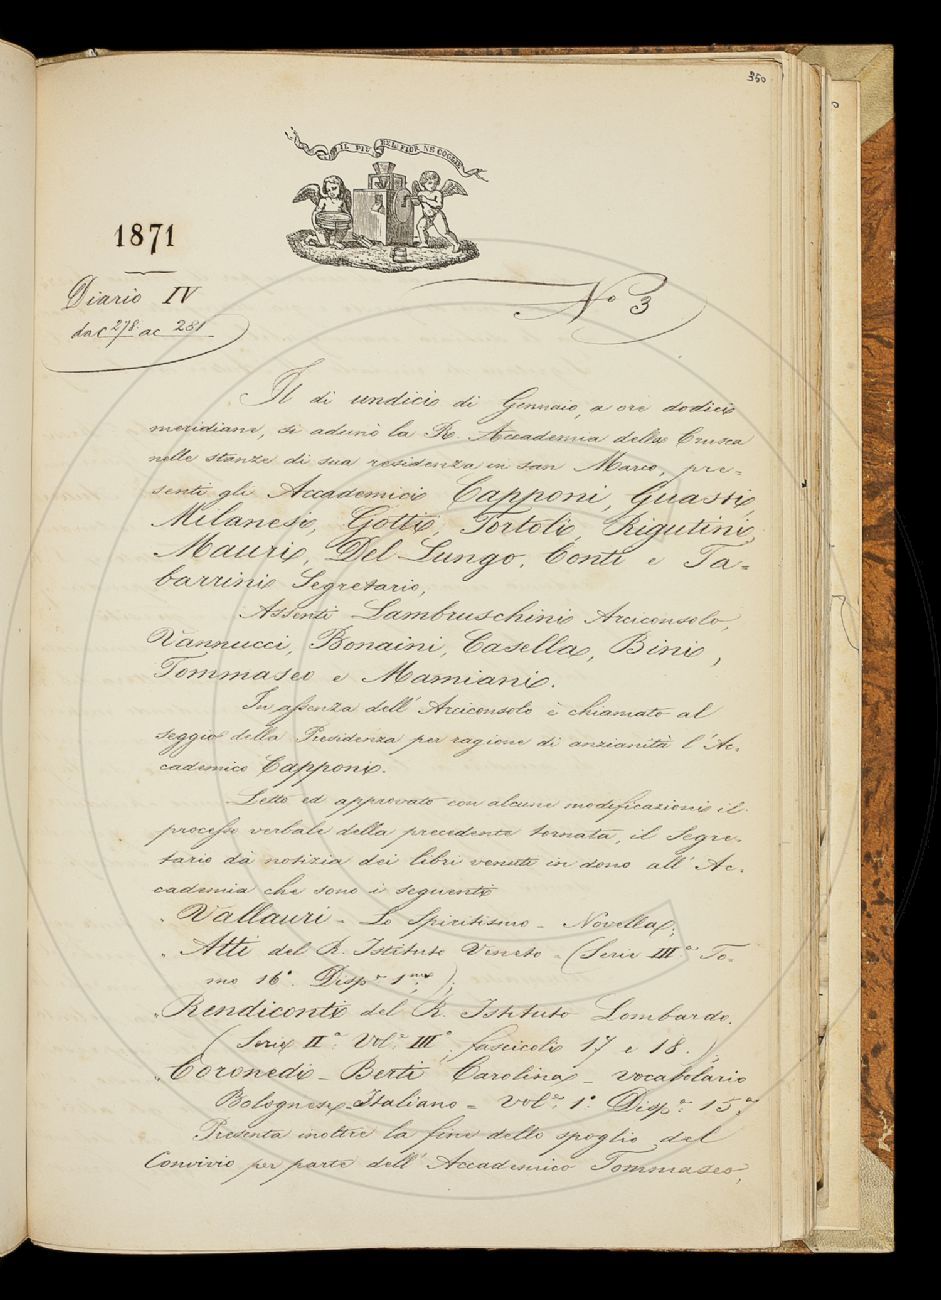 350
IL PIÙ BEL FIOR NE COGLIE
1871
Diario IV
da c 278. a c 281
N.o 3
Il dì undici di Gennaio, a ore dodici
meridiane, si adunò la R. Accademia della Crusca
nelle stanze di sua residenza in san Marco, pre=
senti gli Accademici Capponi, Guasti,
Milanesi, Gotti, Tortoli, Rigutini,
Mauri, Del-Lungo, Conti e Ta=
barrini Segretario,
Assenti Lambruschini Arciconsolo,
Vannucci, Bonaini, Casella, Bini,
Tommaseo e Mamiani.
In assenza dell'Arciconsolo è chiamato al
seggio della Presidenza per ragione di anzianità l'Ac-
cademico Capponi.
Letto ed approvato con alcune modificazioni il
processo verbale della precedente tornata, il Segre-
tario dà notizia dei libri venuti in dono all'Ac-
cademia che sono i seguenti
Vallauri - Lo Spiritismo - Novella;
Atti del R. Istituto Veneto - (Serie III.a To-
mo 16.o Disp.a 1.ma);
Rendiconti del R. Istituto Lombardo.
(Serie II.a Vol.e III.o, fascicoli 17 e 18.)
Coronedi - Berti Carolina - Vocabolario
Bolognese-Italiano - Vol.e 1.o Disp.a 15.a
Presenta inoltre la fine dello spoglio del
Convivio per parte dell'Accademico Tommaseo,